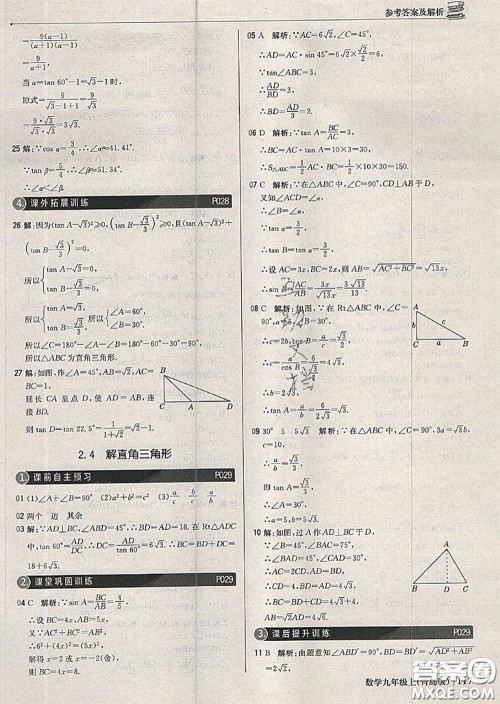 参考答案及解析
= 9(a-1)/((a+1)(a-1))
= 9/(a+1),
当 a=tan 60°-1=√3-1 时,
原式= 9/(√3-1+1) = 9/√3
= 9·√3/(√3·√3) =3√3.
25 解:∵cos α= 3/4,∴α≈41.41°.
∵tan β= 5/4,∴β≈51.34°.
∴α<β.
4 课外拓展训练 P028
26 解:因为(tan A-√3)²≥0,(tan B-√3/3)²≥0,且(tan A-√3)²+
(tan B-√3/3)²=0,
所以 { tan A-√3=0, tan B-√3/3=0,
所以 { tan A=√3, tan B=√3/3, 所以 { ∠A=60°, ∠B=30°.
所以∠C=180°-∠A-∠B=180°-60°-30°=90°.
所以△ABC 为直角三角形.
27 解:如图,作∠A=45°,AB=AC,
BC=1,
延长 CA 至点 D,使得 DA
=AB,
则 tan D=tan 22.5°= 1/(1+√2) =√2-1.
B
C A D
2.4 解直角三角形
1. 课前自主预习 P029
01 (1)∠A+∠B=90° (2)a²+b²=c² (3) a/c b/c a/b
02 两个 边 其余
03 解:∵AD⊥BC,∠ADB=45°,∴AD=BD=18. 在 Rt△ADC
中,∵tan 60°= AD/DC,∴DC= AD/tan 60° = 18/√3 =6√3,∴BC=BD+DC=
18+6√3.
2. 课堂巩固训练 P029
04 C 解析:∵sin A= BC/AB = 4/5,
∴设 BC=4x,AB=5x.
又∵AC²+BC²=AB²,
∴6²+(4x)²=(5x)²,
解得 x=2 或 x=-2(舍去),
则 BC=4x=8.故选 C.
05 A 解析:∵AC=6√2,∠C=45°,
∴AD=AC·sin 45°=6√2× √2/2 =6.
∵tan∠ABC=3,
∴ AD/BD =3,
∴BD= AD/3 =2.
06 D 解析:∵tan A= BC/AC =3,
∴BC=AC·tan A=10×3=30.
∴S△ABC= 1/2 AC·BC= 1/2 ×10×30=150.
07 C 解析:∵在△ABC 中,∠C=90°,CD⊥AB 于 D,
又知∠ACD=α,
∴∠B=α.
∵tan α= 3/2,
∴tan B= 3/2.
∴设 AC=3x,BC=2x,则 AB=√(AC²+BC²)=√13 x.
∴sin B= AC/AB = 3x/(√13 x) = 3√13/13.
08 C 解析:如图,在 Rt△ABC 中,
∵∠A=60°,∴∠B=30°,
∴c=2b,cos B= a/c,
∴c= a/cos B = 6/(√3/2) =4√3,
∴b=2√3,
∴tan A= a/b = 6/(2√3) =√3.
A
b c
C a B
09 30° 5 5√3 解析:∵在△ABC 中,∠C=90°,3a=√3b,
c=10,
∴tan A= a/b = √3/3.
∴∠A=30°.
∴a=5,b=5√3.
10 解:如图,过 A 作 AD⊥BC 于 D,
∵AB=AC,
∴BD=CD,
又∵∠B=30°,AD= 1/2 AB=4,
∴BD=4√3,
∴BC=2BD=8√3.
A
B D C
3. 课后提升训练 P029
11 B 解析:由题意知∠BDC=∠A+∠ABD,∠ABD=90°,
数学九年级上(青岛版) 117
答案圈
MXQE.COM